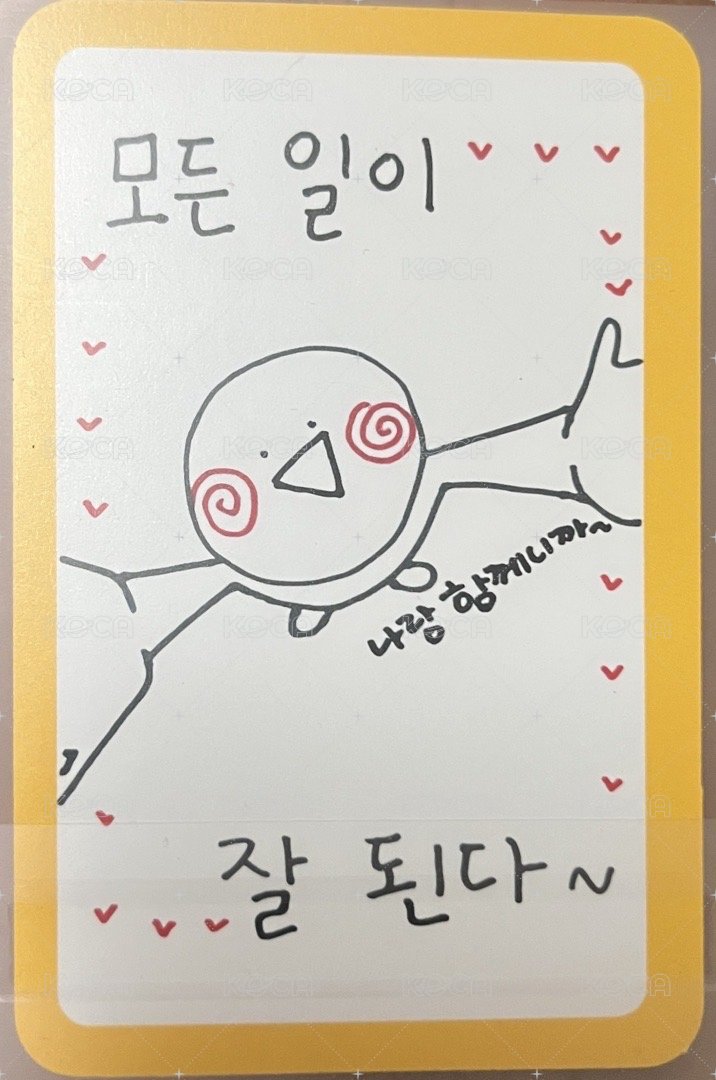 모든 일이
나랑 함께니까~
잘 된다~
KOCA